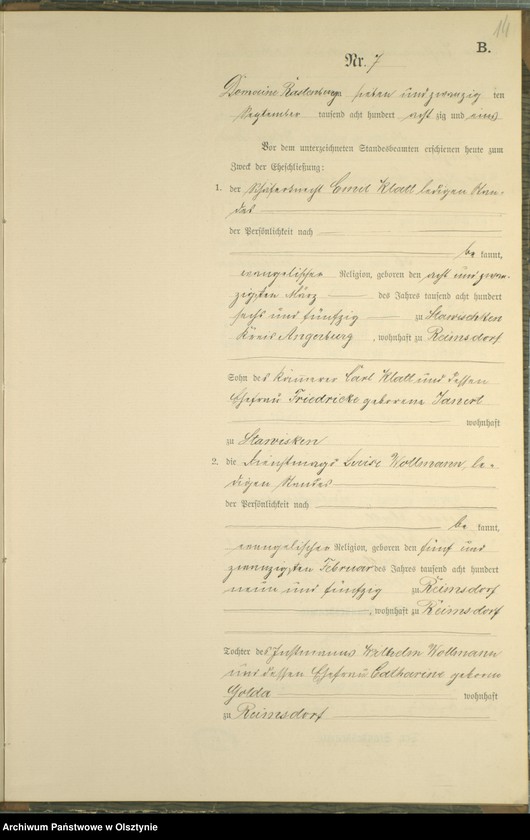 14
B.
Nr. 7
Domaine Rastenburg am sieben und zwanzig ten
September tausend acht hundert acht zig und eins
Vor dem unterzeichneten Standesbeamten erschienen heute zum
Zweck der Eheschließung:
1. der Schäferknecht Carl Klatt ledigen Stan-
des
der Persönlichkeit nach
be kannt,
evangelischer Religion, geboren den acht und zwan-
zigsten März des Jahres tausend acht hundert
sechs und fünfzig zu Stawischken
Kreis Angerburg, wohnhaft zu Reimsdorf
Sohn des Kämmerer Carl Klatt und dessen
Ehefrau Friedricke geborene
wohnhaft
zu Stawisken
2. die Dienstmagd Luise Wollmann, le-
digen Standes
der Persönlichkeit nach
be kannt,
evangelischer Religion, geboren den fünf und
zwanzigsten Februar des Jahres tausend acht hundert
neun und fünfzig zu Reimsdorf
, wohnhaft zu Reimsdorf
Tochter des Instmanns Wollmann
und dessen Ehefrau Catharine geborene
Golda wohnhaft
zu Reimsdorf
Archiwum Państwowe w Olsztynie